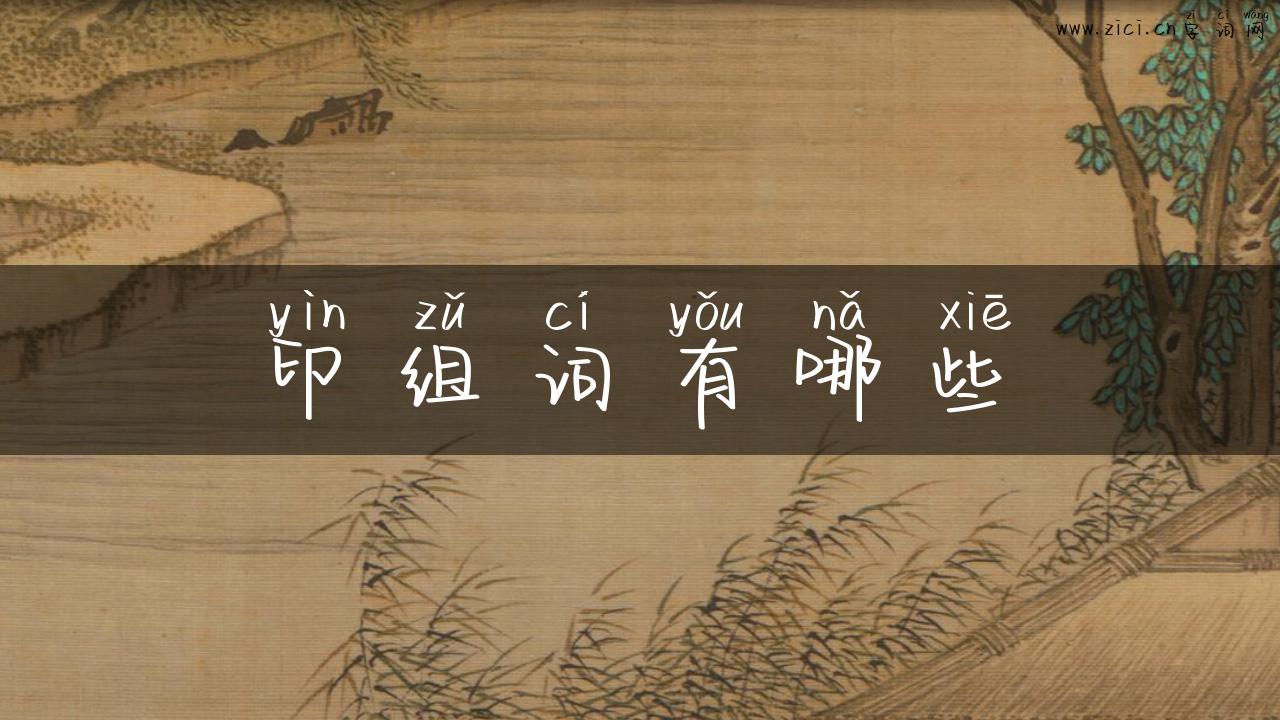 zì cí wǎng
www.zici.cn字词网
yìn zǔ cí yǒu nǎ xiē
印组词有哪些